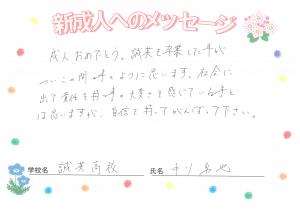 新成人へのメッセージ
成人おめでとう。誠英を卒業した事が
ついこの間の事のように思います。社会に
出て責任を持つ事の大変さを感じている事と
は思いますが、自信を持ってがんばって下さい。
学校名 誠英高校 氏名